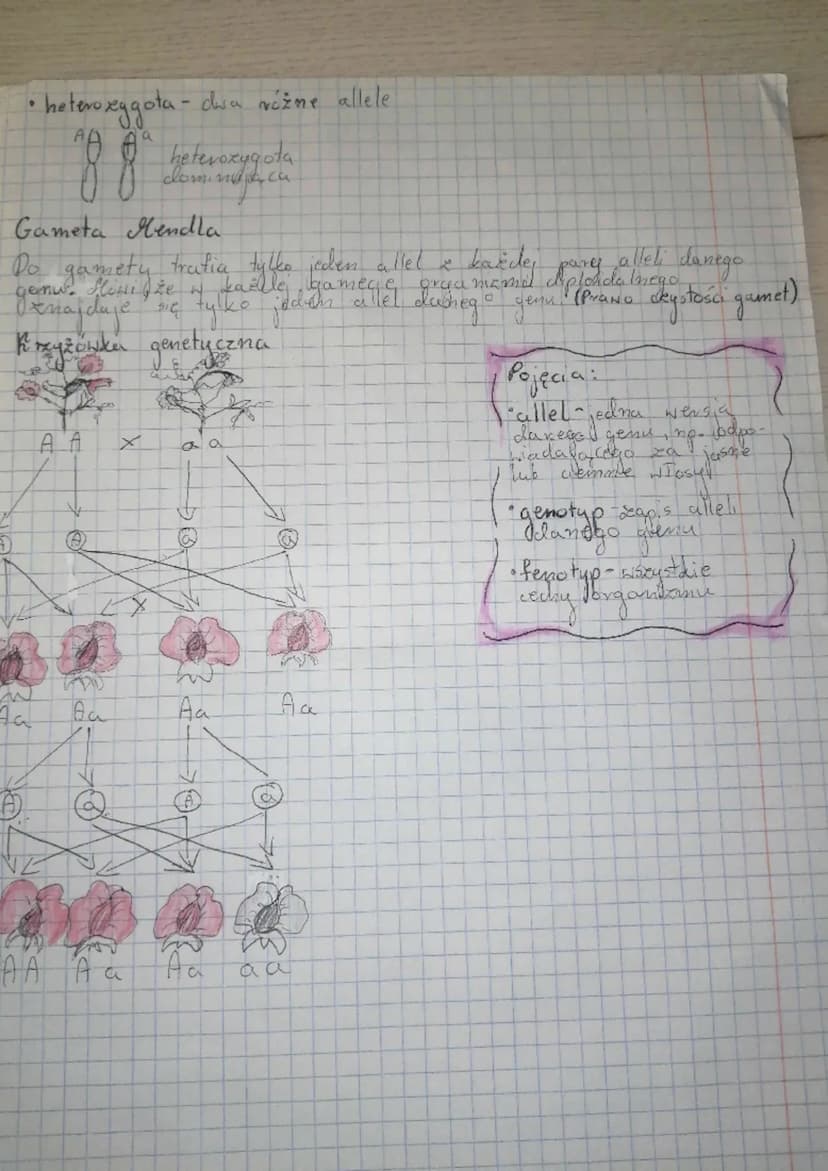 • heterozygota - dwa różne allele
A a
heterozygota
dominująca
Gameta Mendla
Do gamety trafia tylko jeden allel z każdej pary alleli danego
genu. Mówi, że w każdej gamecie organizmu diploidalnego
znajduje się tylko jeden allel danego genu (Prawo czystości gamet)
Krzyżówka genetyczna
A A x a a
A A a a
x
Aa Aa Aa Aa
A a A a
AA Aa Aa aa
Pojęcia:
• allel - jedna wersja
danego genu, np. odpo-
wiadającego za jasne
lub ciemne włosy
• genotyp - zapis alleli
danego genu
• fenotyp - wszystkie
cechy organizmu